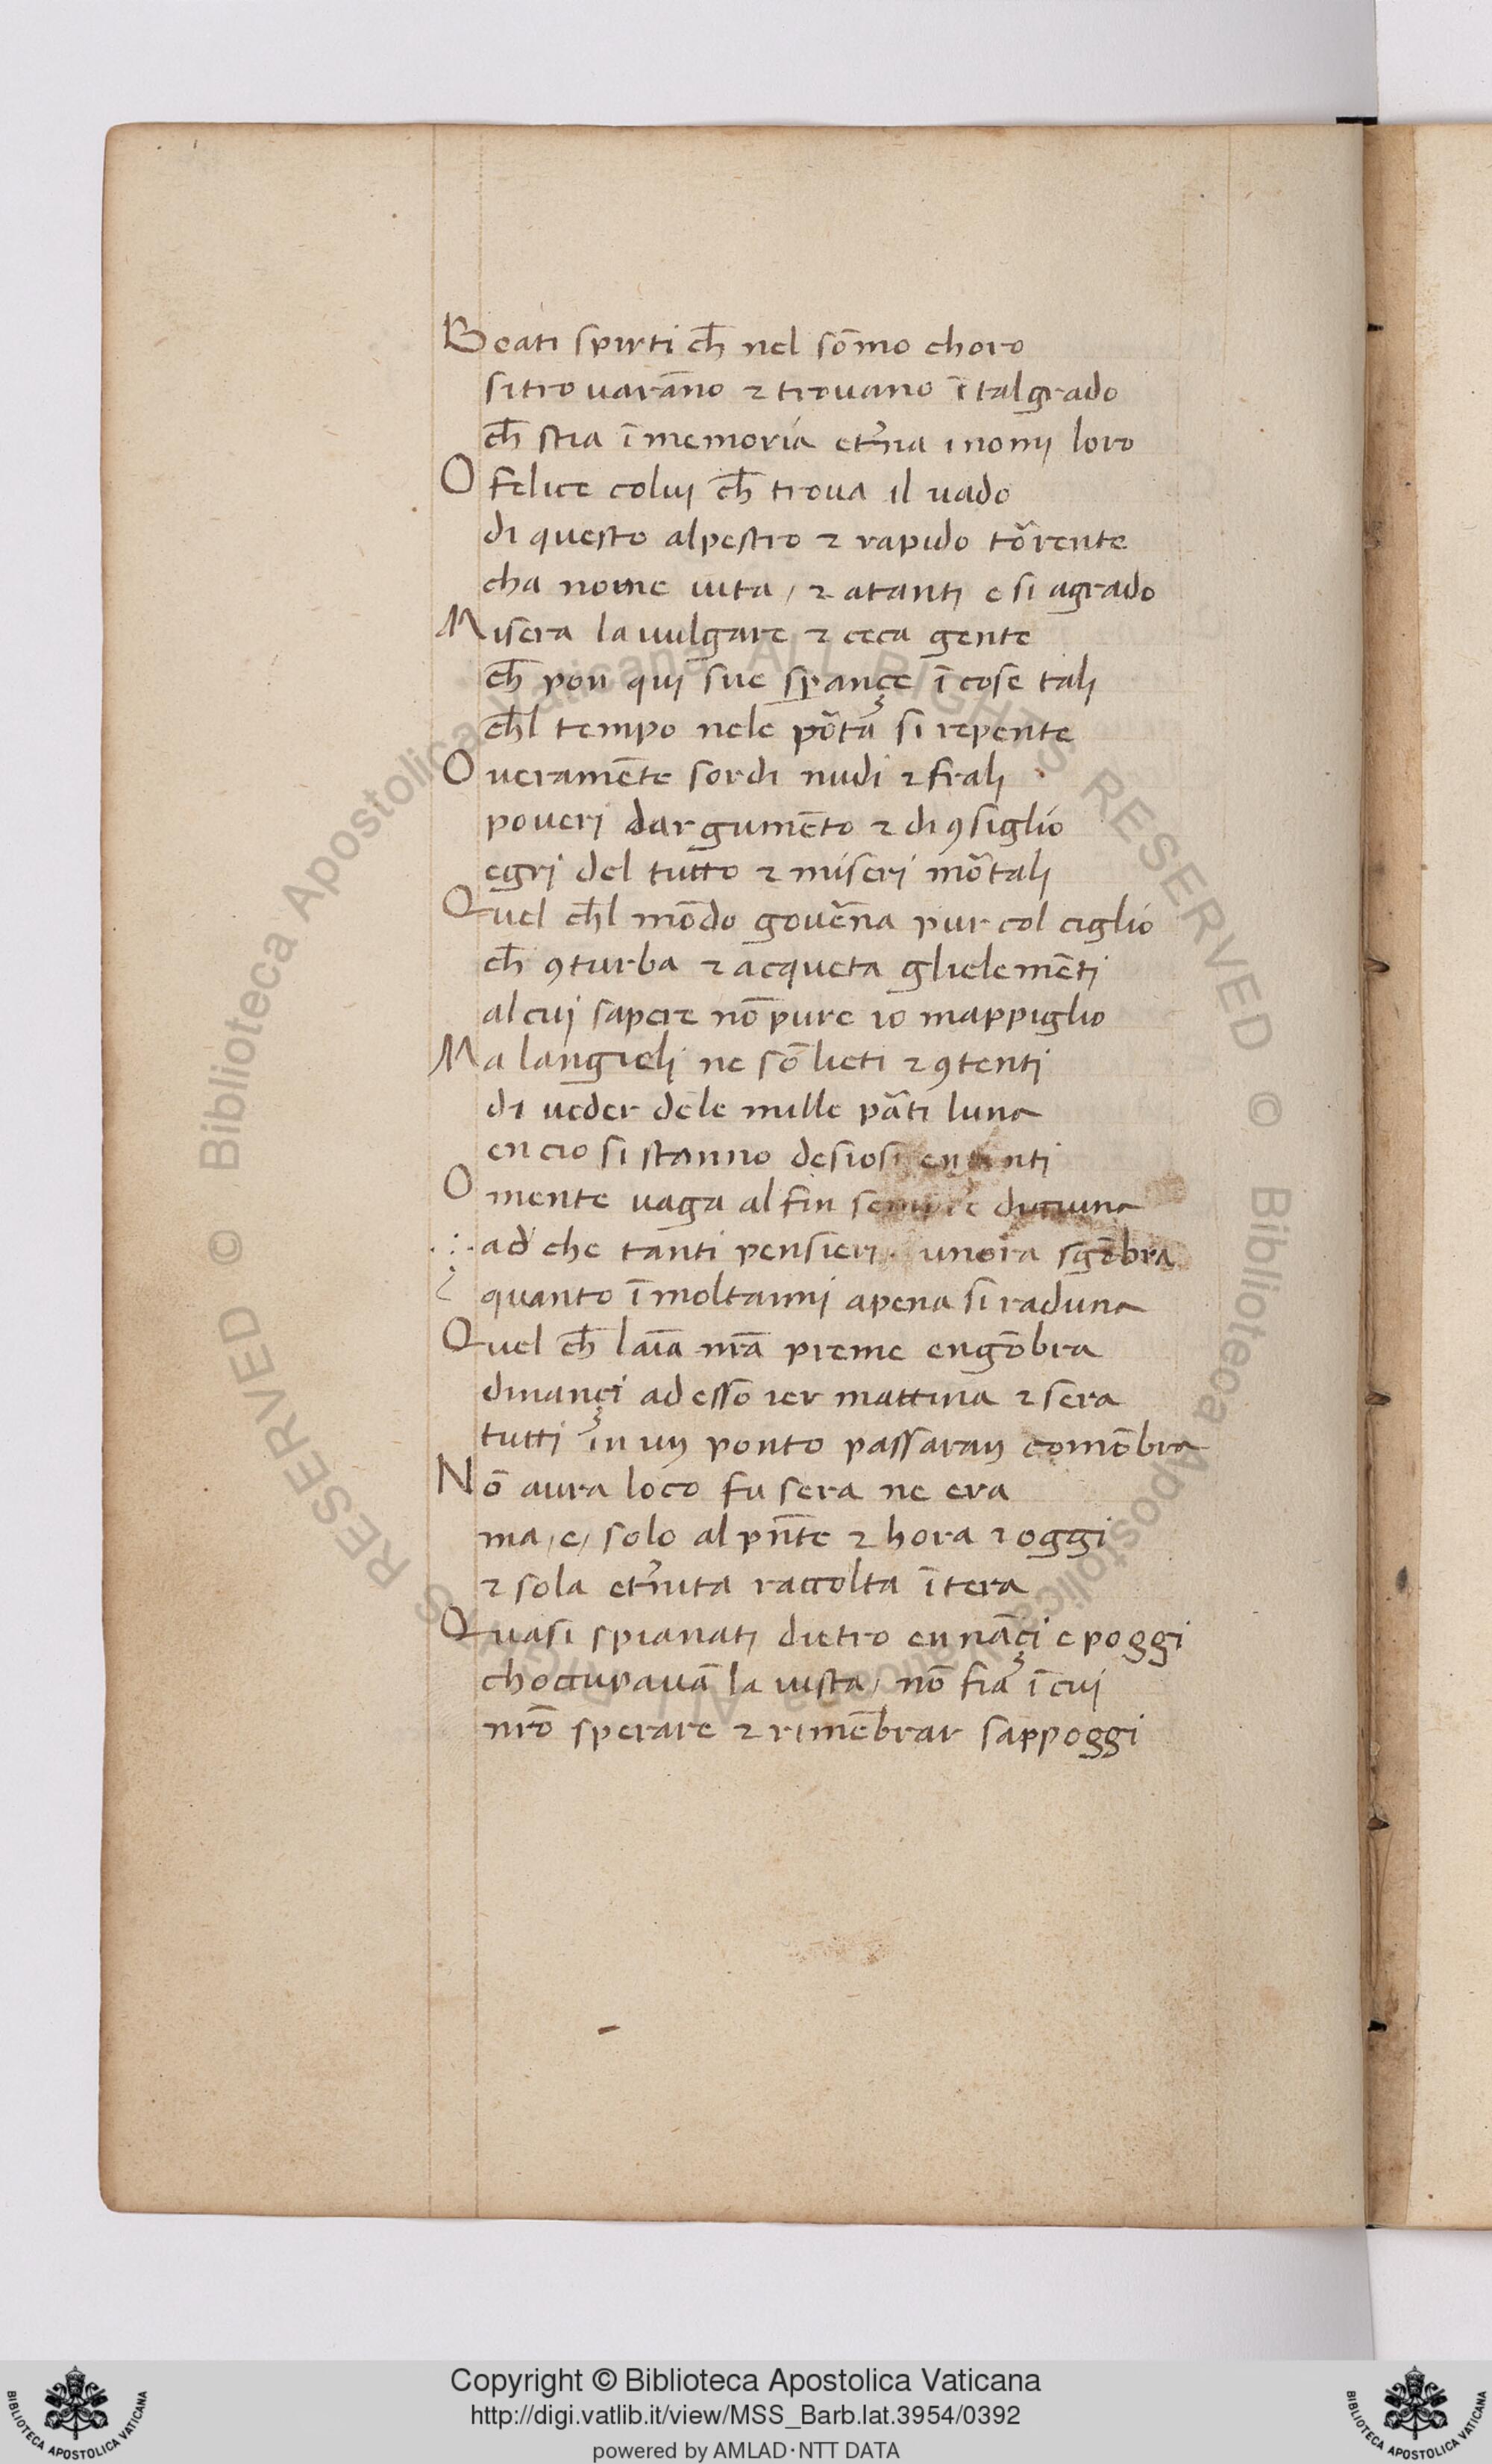 Beati spirti ch̄ nel som̄o choro
si trovarāno ⁊ trovano ī tal grado
ch̄ stia ī memoria et̄na i nomj loro
O felice coluj ch̄ trova il vado
di questo alpestro ⁊ rapido tōrente
cha nome vita / ⁊ a tantj e si agrado
Misera la vulgare ⁊ ceca gente
ch̄ pon quj sue sp̄ançe ī cose talj
ch̄l tempo nele pōta si repente
O veramēte sordi nudi ⁊ fralj
poverj dargumēto ⁊ di ꝯsiglio
egrj del tutto ⁊ miserj mōtalj
Quel ch̄l mōdo gov̄ena pur col ciglio
ch̄ ꝯturba ⁊ acqueta glielemētj
al cuj sapere nō pure io mappiglio
Ma langielj ne sō lieti ⁊ ꝯtentj
di veder dele mille pāti luna
en cio si stanno desiosi
O mente vaga al fin sempre digiuna
.:. ad che tanti pensierj. unora sgōbra
quanto ī moltannj apena si raduna
Quel ch̄ laīa nr̄a preme engōbra
dinançi adesso ier mattina ⁊ sera
tutti in un ponto passaran comōbra
Nō avra loco fu sera ne era
ma /e/ solo al pn̄te ⁊ hora ⁊ oggi
⁊ sola et̄nita raccolta ītera
Quasi spianatj dietro en nāçi e poggi
choccupavā la vista / nō fia ī cui
nr̄o sperare ⁊ rimēbrar sappoggi
Copyright © Biblioteca Apostolica Vaticana
http://digi.vatlib.it/view/MSS_Barb.lat.3954/0392
powered by AMLAD·NTT DATA